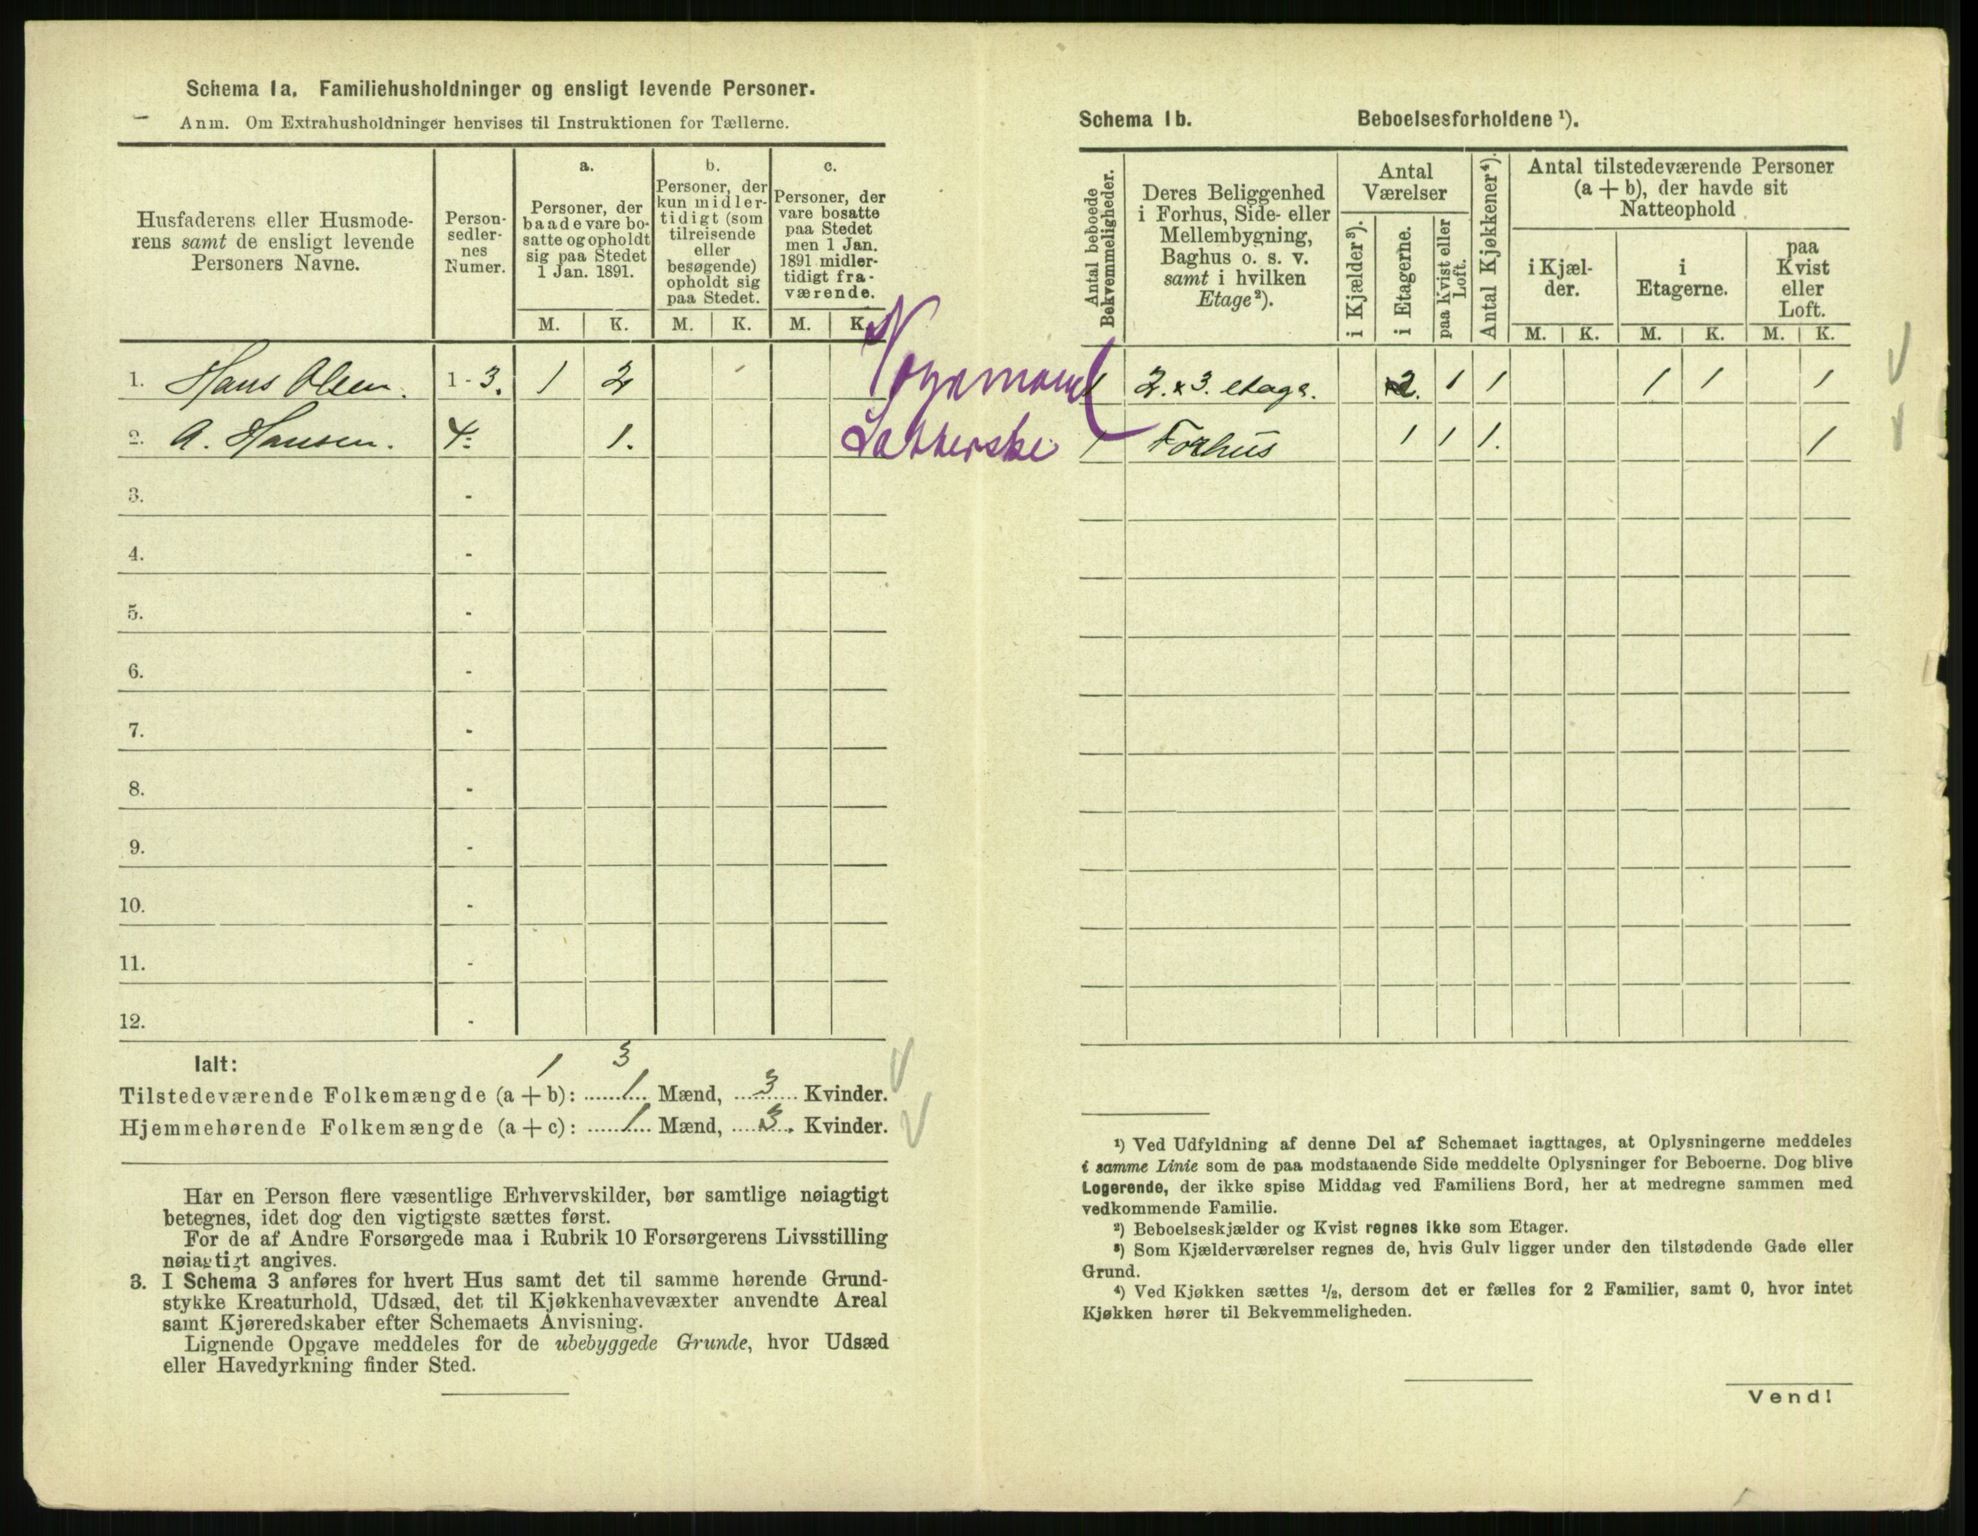 Schema 1a. Familiehusholdninger og ensligt levende Personer.
Anm. Om Extrahusholdninger henvises til Instruktionen for Tællerne.
Husfaderens eller Husmode-
rens samt de ensligt levende
Personers Navne.
Person-
sedler-
nes
Numer.
a.
Personer, der
baade vare bo-
satte og opholdt
sig paa Stedet
1 Jan. 1891.
b.
Personer, der
kun midler-
tidigt (som
tilreisende
eller
besøgende)
opholdt sig
paa Stedet.
c.
Personer, der
vare bosatte
paa Stedet
men 1 Jan.
1891 midler-
tidigt fra-
værende.
M. K. M. K. M. K.
1. Hans Olsen. 1 - 3. 1 2 Vognmand
2. A. Hansen. 4. 1.
3. -
4. -
5. -
6. -
7. -
8. -
9. -
10. -
11. -
12. -
Ialt: 1 3
Tilstedeværende Folkemængde (a + b): 1 Mænd, 3 Kvinder.
Hjemmehørende Folkemængde (a + c): 1 Mænd, 3. Kvinder.
Har en Person flere væsentlige Erhvervskilder, bør samtlige nøiagtigt
betegnes, idet dog den vigtigste sættes først.
For de af Andre Forsørgede maa i Rubrik 10 Forsørgerens Livsstilling
nøiagtigt angives.
3. I Schema 3 anføres for hvert Hus samt det til samme hørende Grund-
stykke Kreaturhold, Udsæd, det til Kjøkkenhavevæxter anvendte Areal
samt Kjøreredskaber efter Schemaets Anvisning.
Lignende Opgave meddeles for de ubebyggede Grunde, hvor Udsæd
eller Havedyrkning finder Sted.
Schema 1b. Beboelsesforholdene ¹).
Antal beboede
Bekvemmeligheder.
Deres Beliggenhed
i Forhus, Side- eller
Mellembygning,
Baghus o. s. v.
samt i hvilken
Etage²).
Antal
Værelser
i Kjælder³).
i Etagerne.
paa Kvist eller
Loft.
Antal Kjøkkener⁴).
Antal tilstedeværende Personer
(a + b), der havde sit
Natteophold
i Kjæl-
der.
i
Etagerne.
paa
Kvist
eller
Loft.
M. K. M. K. M. K.
1 2. & 3. etage. 2. 1 1 1 1 1
1 Forhus 1 1 1. 1
¹) Ved Udfyldning af denne Del af Schemaet iagttages, at Oplysningerne meddeles
i samme Linie som de paa modstaaende Side meddelte Oplysninger for Beboerne. Dog blive
Logerende, der ikke spise Middag ved Familiens Bord, her at medregne sammen med
vedkommende Familie.
²) Beboelseskjælder og Kvist regnes ikke som Etager.
³) Som Kjælderværelser regnes de, hvis Gulv ligger under den tilstødende Gade eller
Grund.
⁴) Ved Kjøkken sættes ½, dersom det er fælles for 2 Familier, samt 0, hvor intet
Kjøkken hører til Bekvemmeligheden.
Vend!